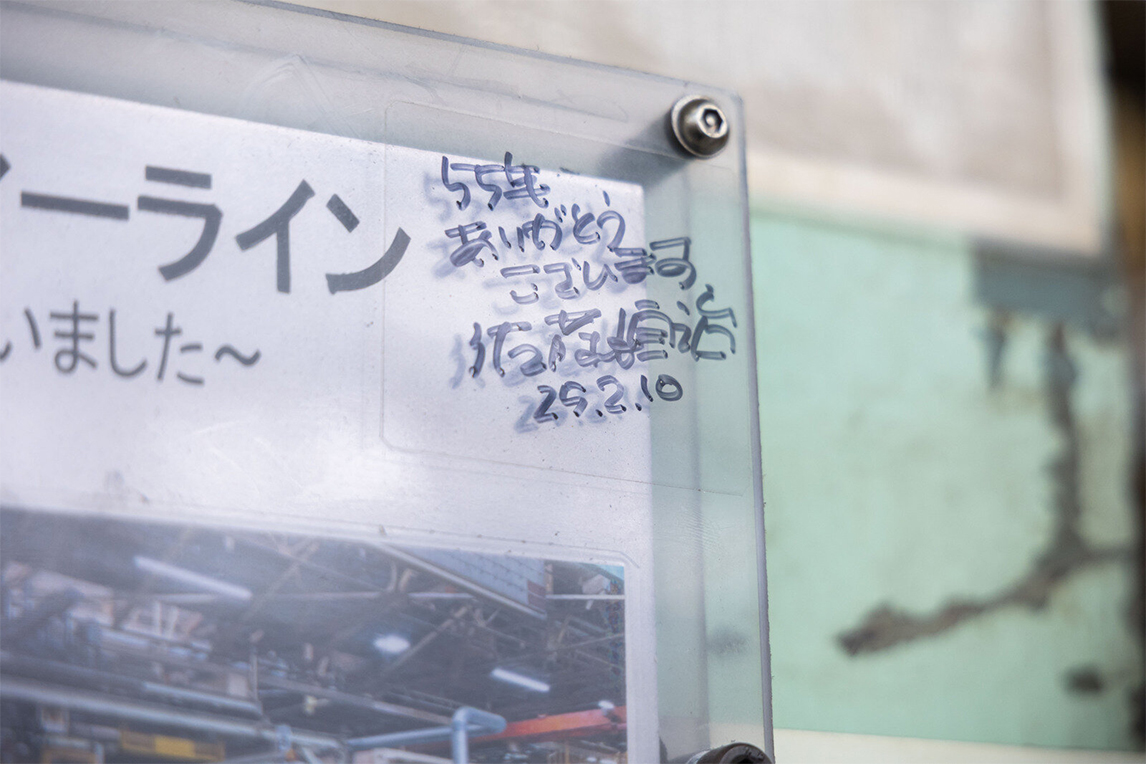 ーライン
いました～
55年
ありがとう
ございます
佐藤
25.2.10